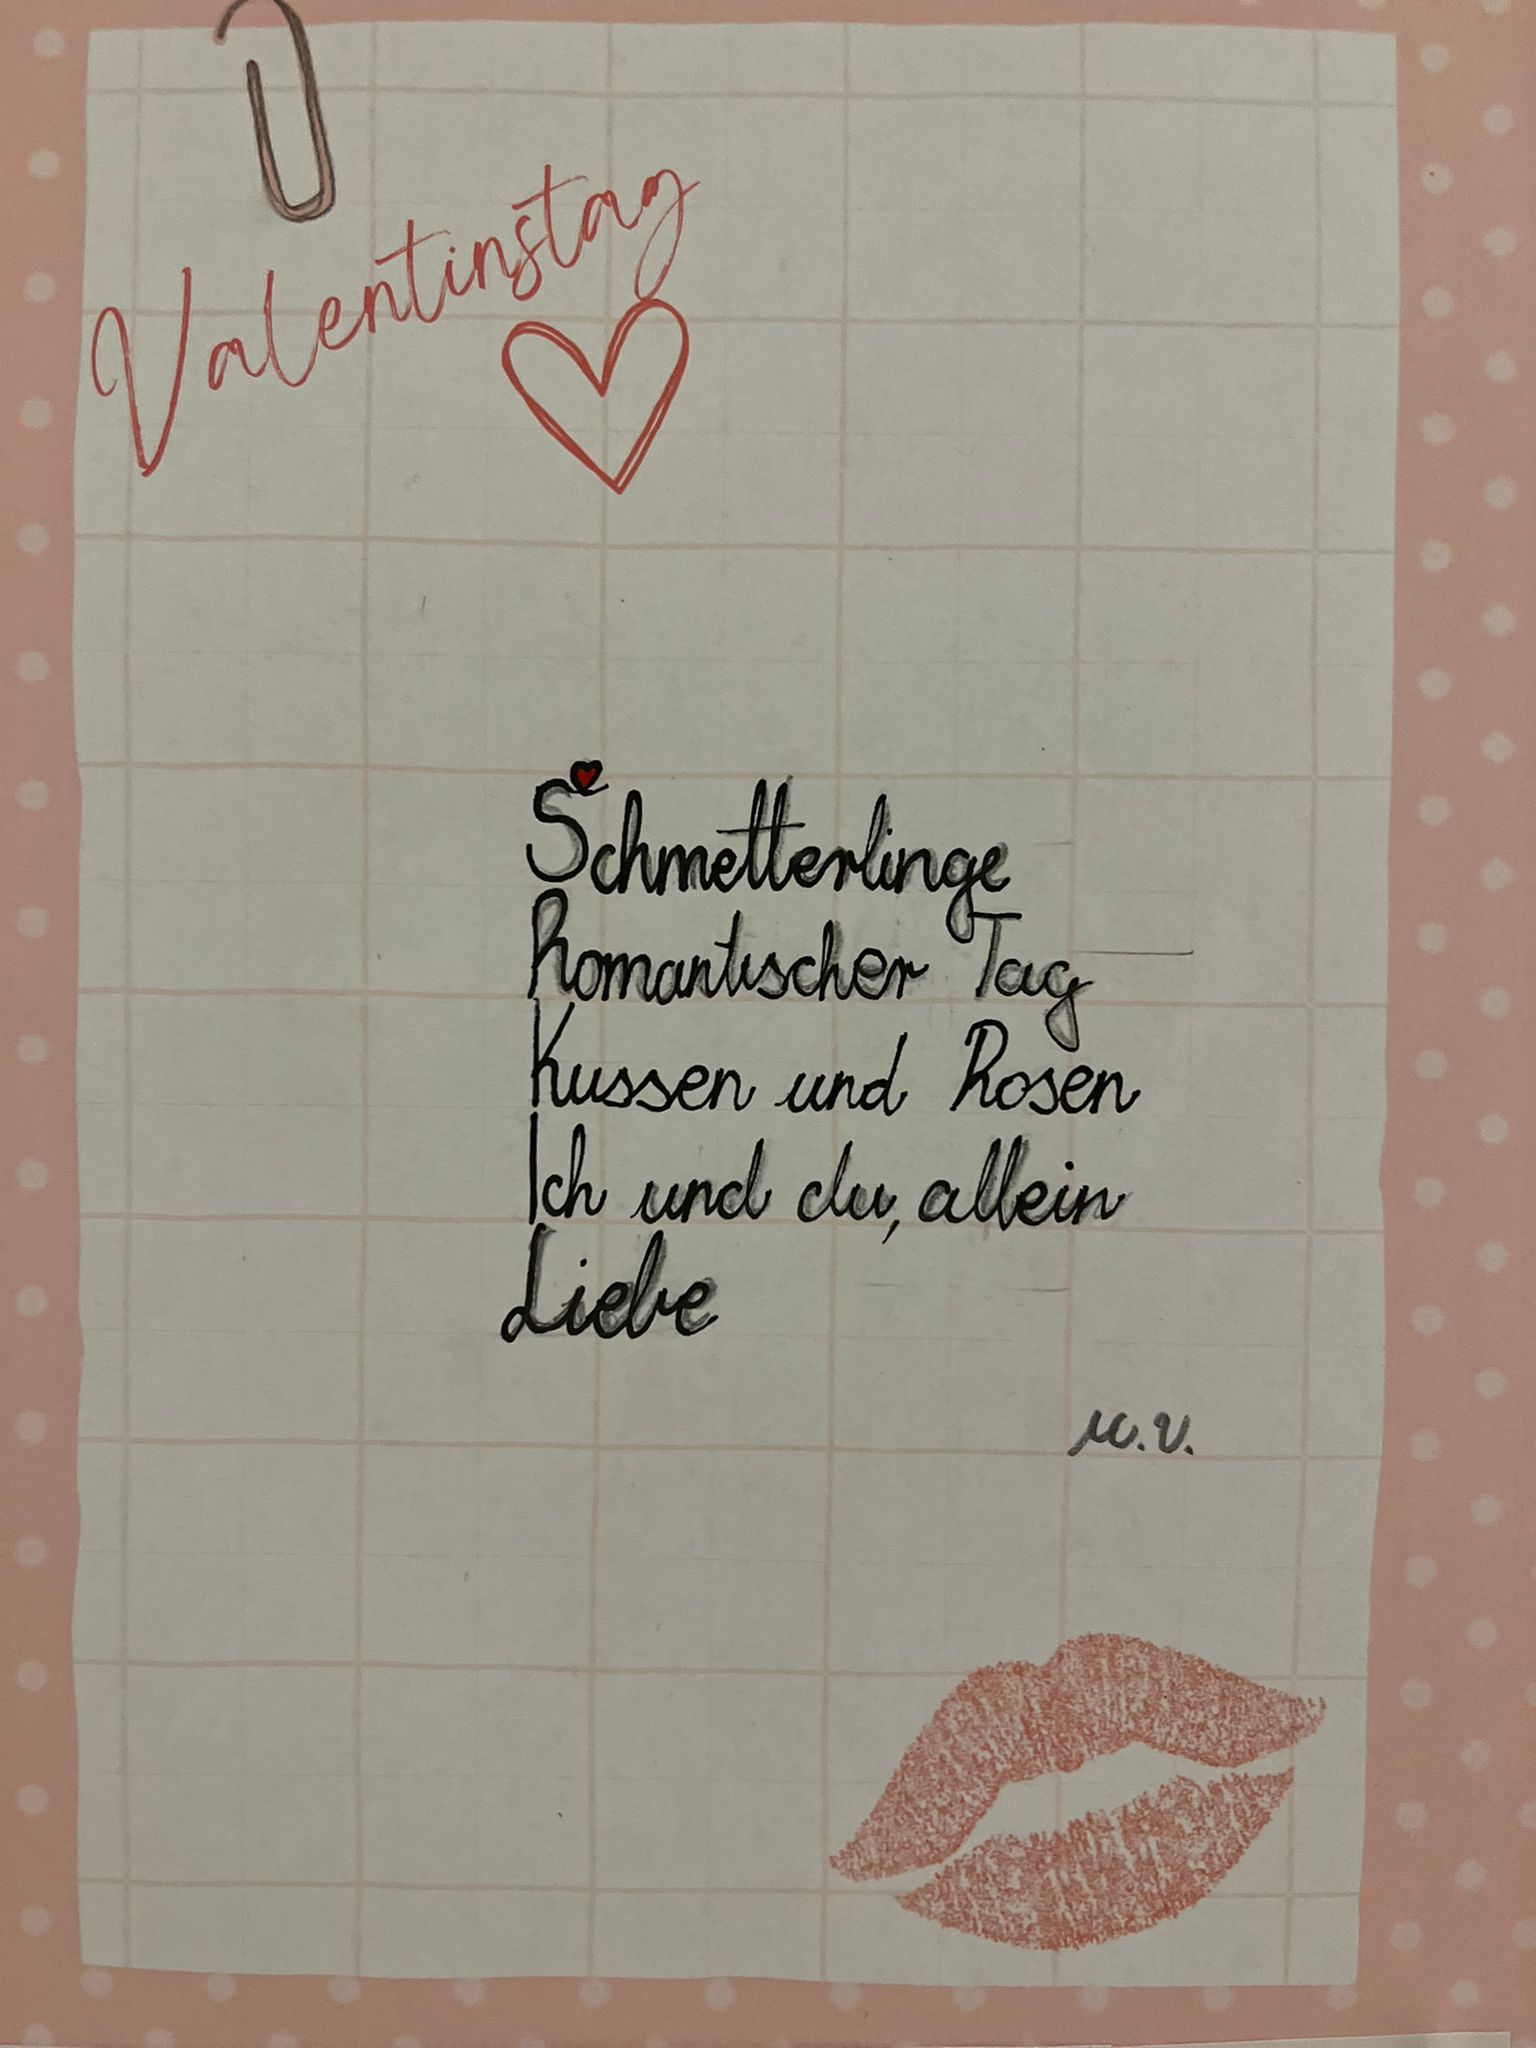 Valentinstag
Schmetterlinge
Romantischer Tag
Kussen und Rosen
Ich und du, allein
Liebe
M.V.